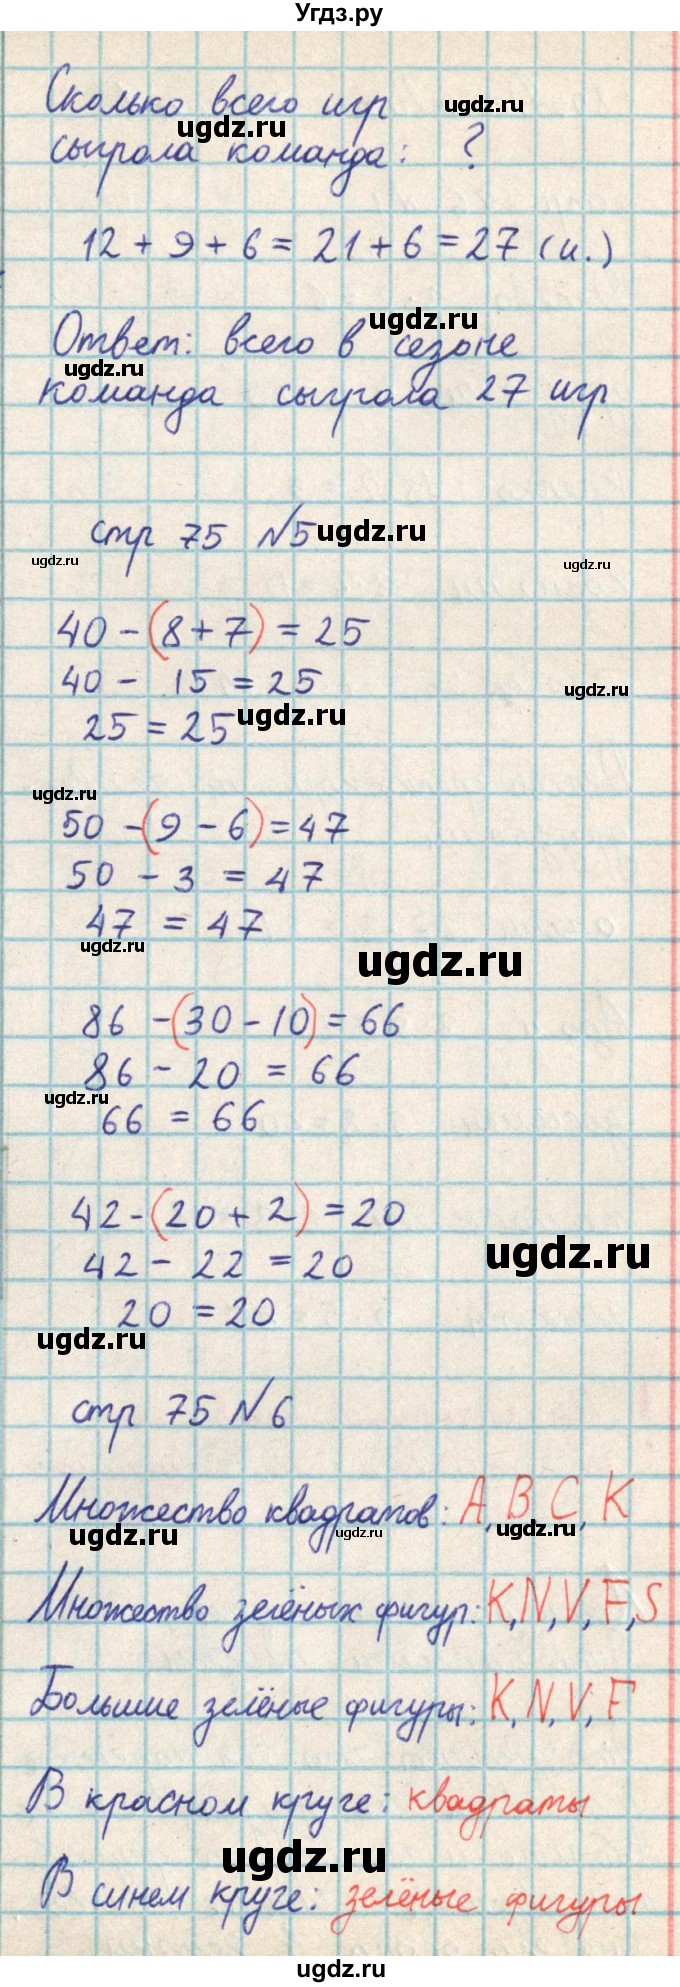 Угдз.ру
Сколько всего игр
ugdz.ru
ugdz.ru
сыграла команда: ?
12 + 9 + 6 = 21 + 6 = 27 (и.)
ugdz.ru
Ответ: всего в сезоне
ugdz.ru
команда сыграла 27 игр
стр 75 №5
ugdz.ru
ugdz.ru
ugdz.ru
40 - (8 + 7) = 25
40 - 15 = 25
ugdz.ru
25 = 25
ugdz.ru
ugdz.ru
50 - (9 - 6) = 47
50 - 3 = 47
47 = 47
ugdz.ru
ugdz.ru
86 - (30 - 10) = 66
86 - 20 = 66
ugdz.ru
66 = 66
42 - (20 + 2) = 20
42 - 22 = 20
ugdz.ru
20 = 20
ugdz.ru
стр 75 №6
Множество квадратов: A, B C, K
ugdz.ru
ugdz.ru
ugdz.ru
Множество зелёных фигур: K, N, V, F, S
Большие зелёные фигуры: K, N, V, F
В красном круге: квадраты
ugdz.ru
В синем круге: зелёные фигуры
ugdz.ru